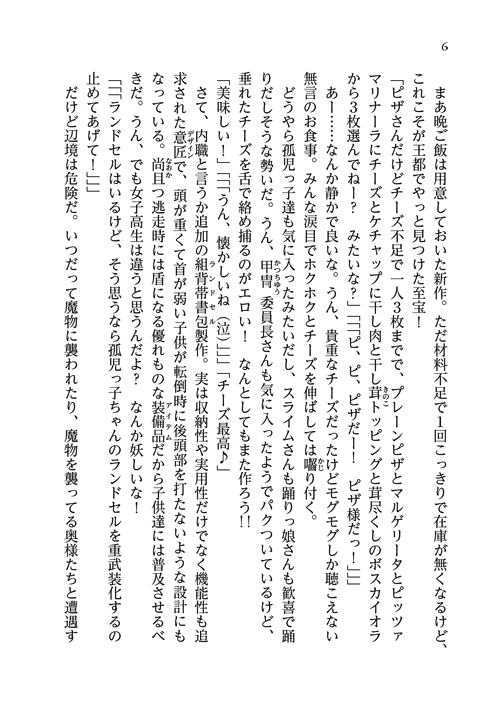 6
まあ晩ご飯は用意しておいた新作。ただ材料不足で1回こっきりで在庫が無くなるけど、
これこそが王都でやっと見つけた至宝！
「ピザさんだけどチーズ不足で一人3枚までで、プレーンピザとマルゲリータとピッツァ
マリナーラにチーズとケチャップに干し肉と干し茸トッピングと茸尽くしのボスカイオラ
から3枚選んでねー？　みたいな？」「「「ピ、ピ、ピザだー！　ピザ様だっー！」」」
あー……なんか静かで良いな。うん、貴重なチーズだったけどモグモグしか聴こえない
無言のお食事。みんな涙目でホクホクとチーズを伸ばしては囓り付く。
どうやら孤児っ子達も気に入ったみたいだし、スライムさんも踊りっ娘さんも歓喜で踊
りだしそうな勢いだ。うん、甲冑委員長さんも気に入ったようでパクついているけど、
垂れたチーズを舌で絡め捕るのがエロい！　なんとしてもまた作ろう!!
「美味しい！」「「「うん、懐かしいね（泣）」」」「チーズ最高♪」
さて、内職と言うか追加の組背帯書包製作。実は収納性や実用性だけでなく機能性も追
求された意匠で、頭が重くて首が弱い子供が転倒時に後頭部を打たないような設計にも
なっている。尚且つ逃走時には盾になる優れものな装備品だから子供達には普及させるべ
きだ。うん、でも女子高生は違うと思うんだよ？　なんか妖しいな！
「「「ランドセルはいるけど、そう思うなら孤児っ子ちゃんのランドセルを重武装化するの
止めてあげて！」」」
だけど辺境は危険だ。いつだって魔物に襲われたり、魔物を襲ってる奥様たちと遭遇す